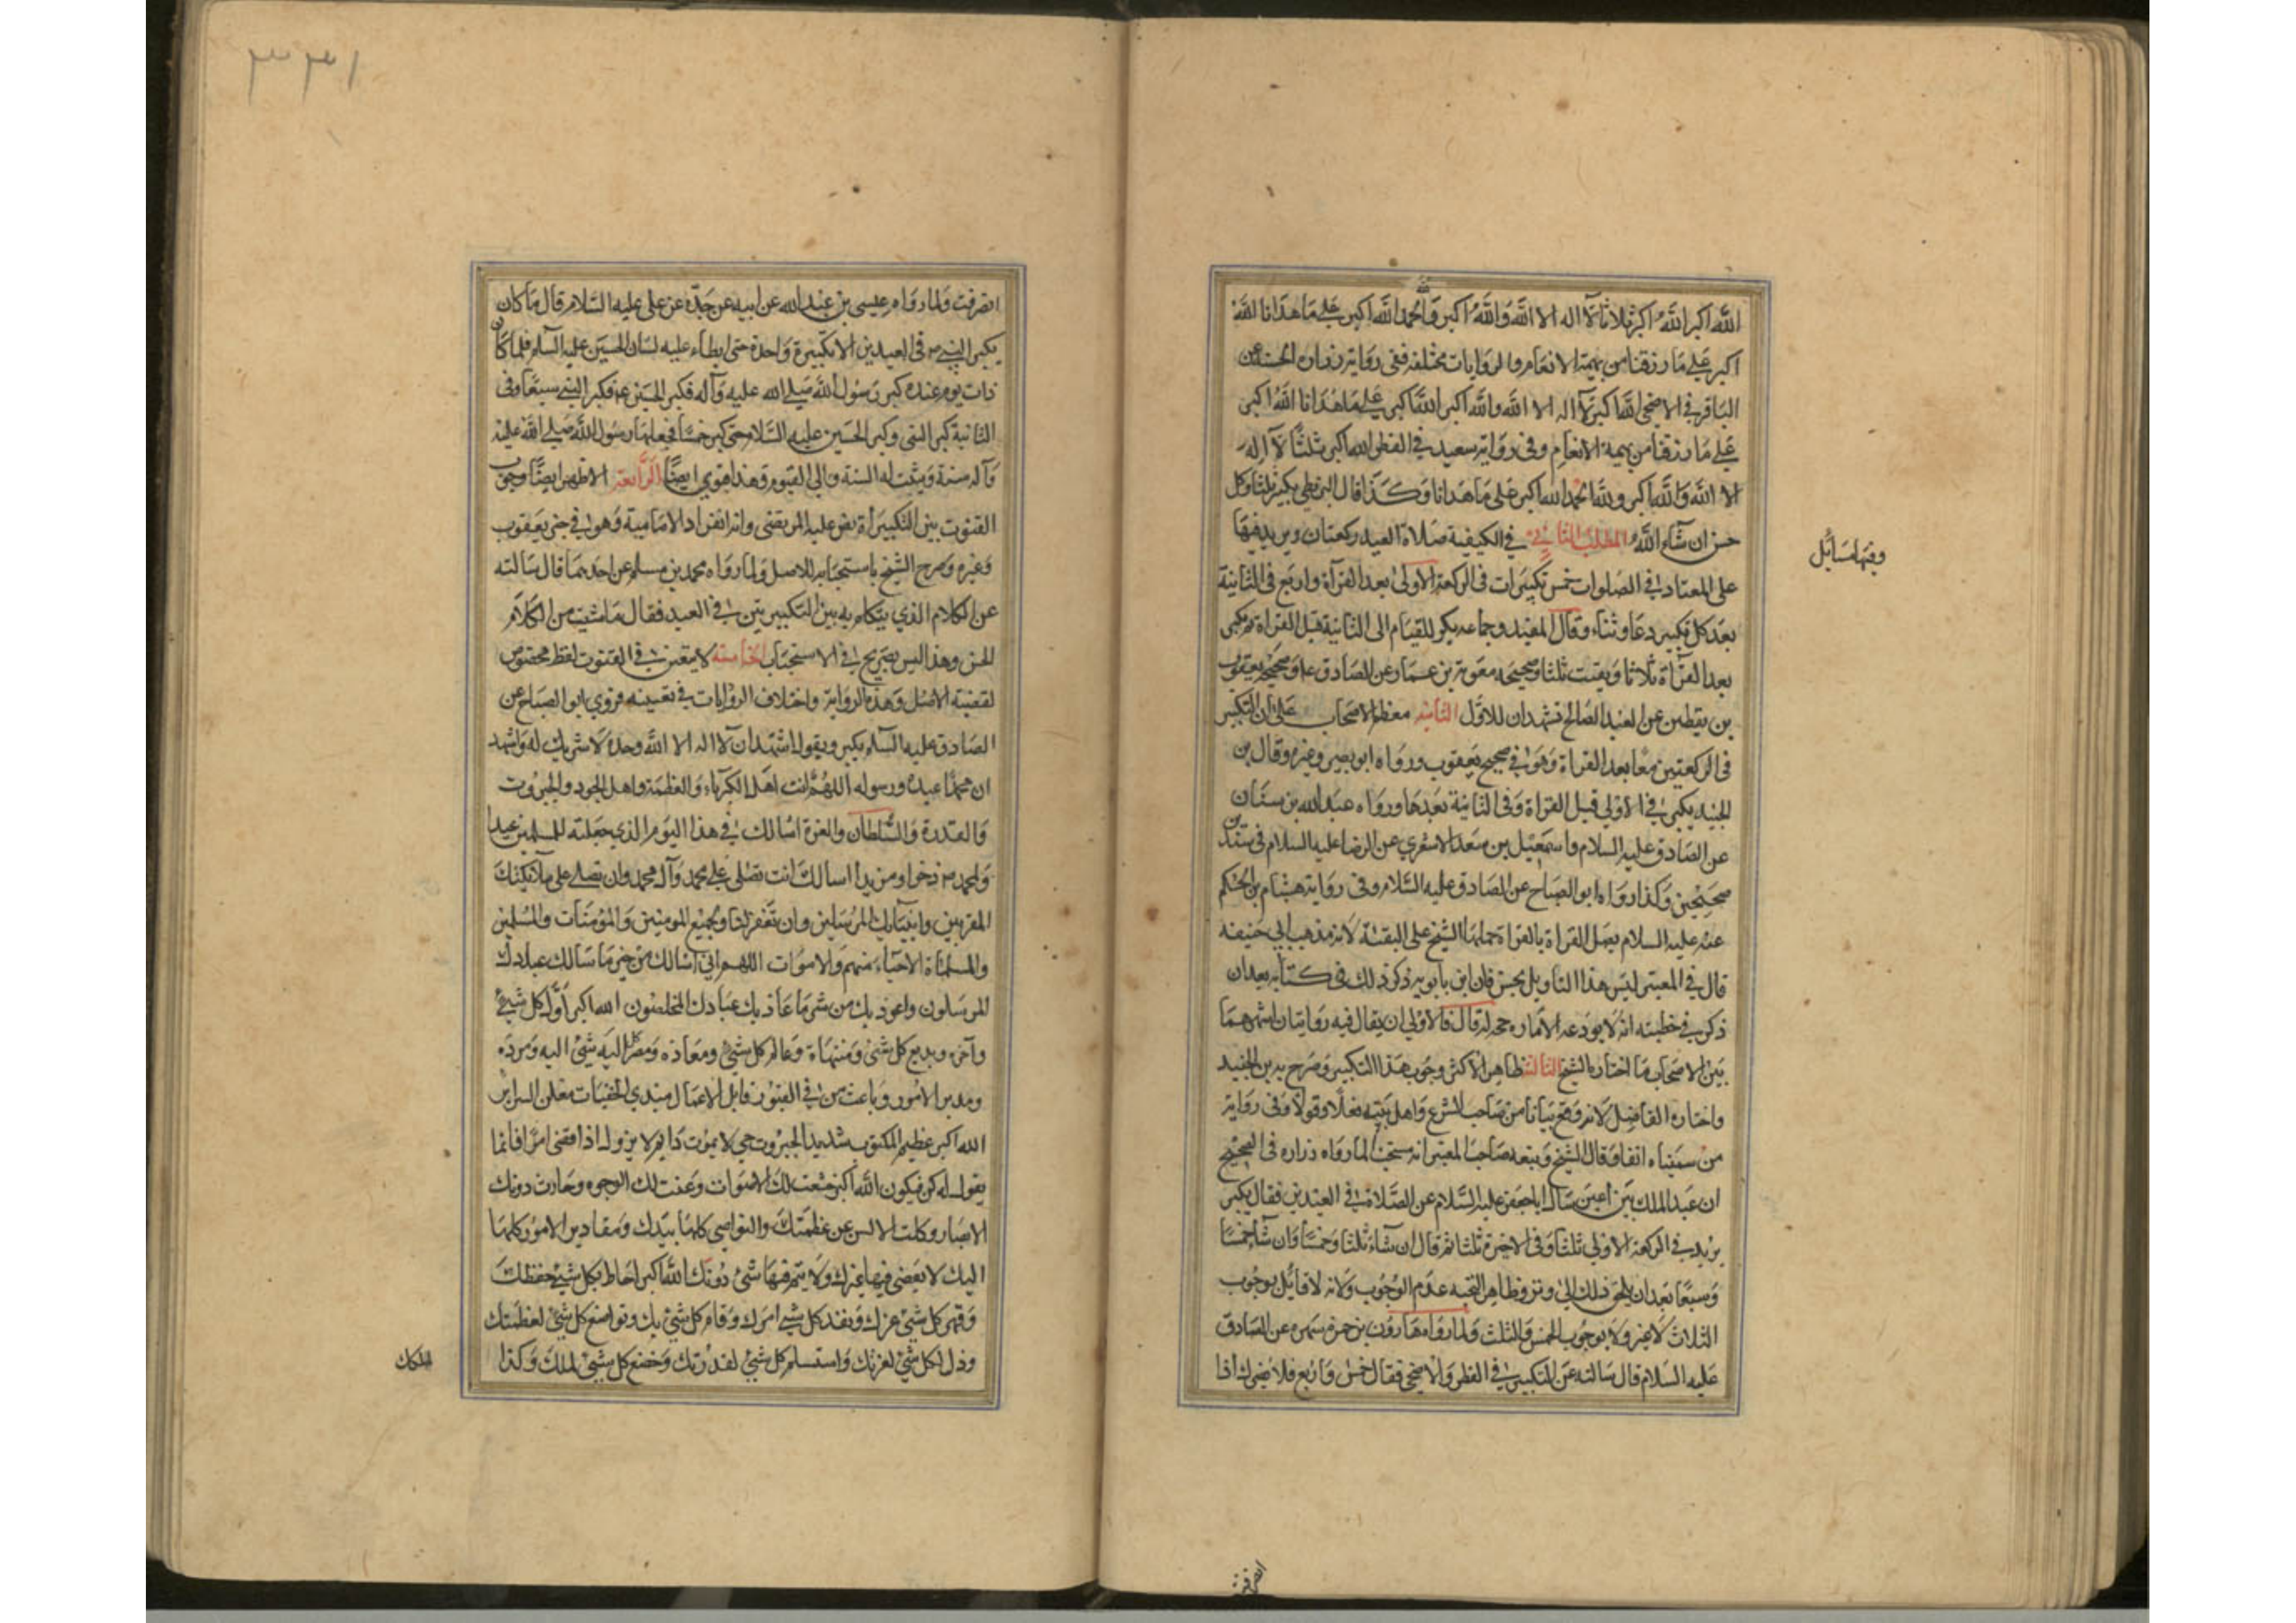 الله اكبر الله اكبر ثلاثا لا اله الا الله والله اكبر والحمد لله الله اكبر على ما هدانا الله
اكبر على ما رزقنا من بهيمة الانعام والروايات مختلفه ففى رواية زراره الحسنه عن
الباقر في الاضحى الله اكبر لا اله الا الله والله اكبر الله اكبر على ما هدانا الله اكبر
على ما رزقنا من بهيمة الانعام وفى رواية سعيد في الفطر الله اكبر ثلثا لا اله
الا الله والله اكبر ولله الحمد الله اكبر على ما هدانا وكذا قال البزنطي يكبر ثلثا وكل
حسن ان شاء الله المطلب الثاني في الكيفية صلاة العيد ركعتان ويزيد فيها
وفيها مسائل
على المعتاد في الصلوات خمس تكبيرات في الركعة الاولى بعد القرآة واربع في الثانية
بعد كل تكبير دعاء وثناء وقال المفيد وجماعه يكبر للقيام الى الثانية قبل القراة ثم يكبر
بعد القرآة ثلاثا ويقنت ثلثا وصحيحه معوية بن عمار عن الصادق ع وصحيحه يعقوب
بن يقطين عن العبد الصالح تشهدان للاول الثانيه معظم الاصحاب على ان التكبير
فى الركعتين معا بعد القراة وهو في صحيح يعقوب ورواه ابو بصير وغيره وقال بن
الجنيد يكبر في الاولى قبل القراة وفى الثانية بعدها ورواه عبد الله بن سنان
عن الصادق عليه السلام واسمعيل بن سعد الاشعري عن الرضا عليه السلام فى سندين
صحيحين وكذا رواه ابو الصباح عن الصادق عليه السلام وفى رواية هشام بن الحكم
عنه عليه السلام يصل القراة بالقراة حملها الشيخ على التقية لانه مذهب ابي حنيفه
قال في المعتبر ليس هذا التاويل بحسن فان ابن بابويه ذكر ذلك فى كتابه بعد ان
ذكر في خطبته انه لا يودعه الا ما ره حجه له قال فالاولى ان يقال فيه روايتان اشهرهما
بين الاصحاب ما اختاره الشيخ الثالثة ظاهر الاكثر وجوب هذا التكبير وصرح به بن الجنيد
واختاره الفاضل لانه وقع بيانا من صاحب الشرع واهل بيته فعلا وقولا وفى رواية
من سميناه انفا وقال الشيخ وتبعه صاحب المعتبر انه مستحب لما رواه زراره فى الصحيح
ان عبد الملك بن اعين سال ابا جعفر عليه السلام عن الصلاة في العيدين فقال يكبر
يزيد في الركعة الاولى ثلثا وفى الاخرة ثلثا ثم قال ان شاء ثلثا وخمسا وان شاء خمسا
وسبعا بعد ان يلحق ذلك الى وتر وظاهر التخييه عدم الوجوب ولانه لا قايل بوجوب
الثلاث لا غير ولا بوجوب الخمس والثلث ولما رواه هارون بن حمزة عن الصادق
عليه السلام قال سالته عن التكبير في الفطر والاضحى فقال خمس واربع فلا يضرك اذا
انصرفت
انصرفت ولما رواه عيسى بن عبد الله عن ابيه عن جده عن على عليه السلام قال ما كان
يكبر النبي ص فى العيدين الا تكبيرة واحدة حتى ابطاء عليه لسان الحسين عليه السلم فلما كان
ذات يوم عنده كبر رسول الله صلى الله عليه وآله فكبر الحسين ع فكبر النبي سبعا وفى
الثانية كبر النبى وكبر الحسين عليه السلام حتى كبر خمسا فجعلها رسول الله صلى الله عليه
وآله سنة وثبتت له السنة والى اليوم وهذا قوي ايضا الرابعة الاظهر ايضا وجوب
القنوت بين التكبيرة نص عليه المرتضى وانه انفراد الامامية وهو في خبر يعقوب
وغيره وصرح الشيخ باستحبابه للاصل ولما رواه محمد بن مسلم عن احدهما قال سالته
عن الكلام الذي يتكلم به بين التكبيرتين في العيد فقال ما شئت من الكلام
الحسن وهذا ليس بصريح في الاستحباب الخامسة لا يتعين في القنوت لفظ مخصوص
لقضية الاصل وهذه الرواية واختلاف الروايات في تعيينه فروي ابو الصباح عن
الصادق عليه السلم يكبر ويقول اشهد ان لا اله الا الله وحده لا شريك له واشهد
ان محمدا عبده ورسوله اللهم انت اهل الكبرياء والعظمة واهل الجود والجبروت
والقدرة والسلطان والعزة اسالك في هذا اليوم الذي جعلته للمسلمين عيدا
ولمحمد ص ذخرا ومزيدا اسالك انت تصلى على محمد وآل محمد وان تصلى على ملائكتك
المقربين وانبيائك المرسلين وان تغفر لنا ولجميع المومنين والمؤمنات والمسلمين
والمسلماة الاحياء منهم والاموات اللهم اني اسالك من خير ما سالك عبادك
المرسلون واعوذ بك من شر ما عاذ بك عبادك المخلصون الله اكبر اول كل شيء
وآخره وبديع كل شئ ومنتهاه وعالم كل شيئ ومعاده ومصير كل شئ اليه ومرده
ومدبر الامور وباعث من في القبور قابل الاعمال مبدي الخفيات معلن السراير
الله اكبر عظيم الملكوت شديد الجبروت حي لا يموت دايم لا يزول اذا قضى امرا فانما
يقول له كن فيكون الله اكبر خشعت لك الاصوات وعنت لك الوجوه وحارت دونك
الابصار وكلت الالسن عن عظمتك والنواصي كلها بيدك ومقادير الامور كلها
اليك لا يقضي فيها غيرك ولا يتم فيها شئ دونك الله اكبر احاط بكل شيئ حفظك
وقهر كل شئ عزك ونفذ كل شيء امرك وقام كل شئ بك وتواضع كل شئ لعظمتك
وذل كل شئ لعزتك واستسلم كل شئ لقدرتك وخضع كل شئ لملك وكذا
٣٣١